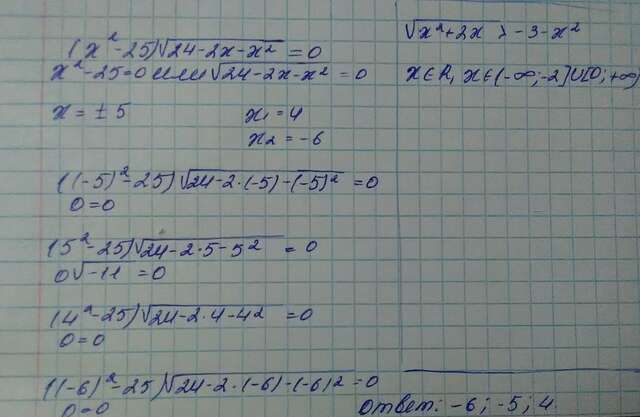 (x²-25)√24-2x-x² = 0
x²-25=0 или √24-2x-x² = 0
x = ± 5
x₁ = 4
x₂ = -6
((-5)²-25)√24-2·(-5)-(-5)² = 0
0=0
(5²-25)√24-2·5-5² = 0
0√-11 = 0
(4²-25)√24-2·4-4² = 0
0=0
((-6)²-25)√24-2·(-6)-(-6)² = 0
0=0
√x²+2x > -3-x²
x∈R, x∈(-∞;-2]∪[0;+∞)
ответ: -6; -5; 4.